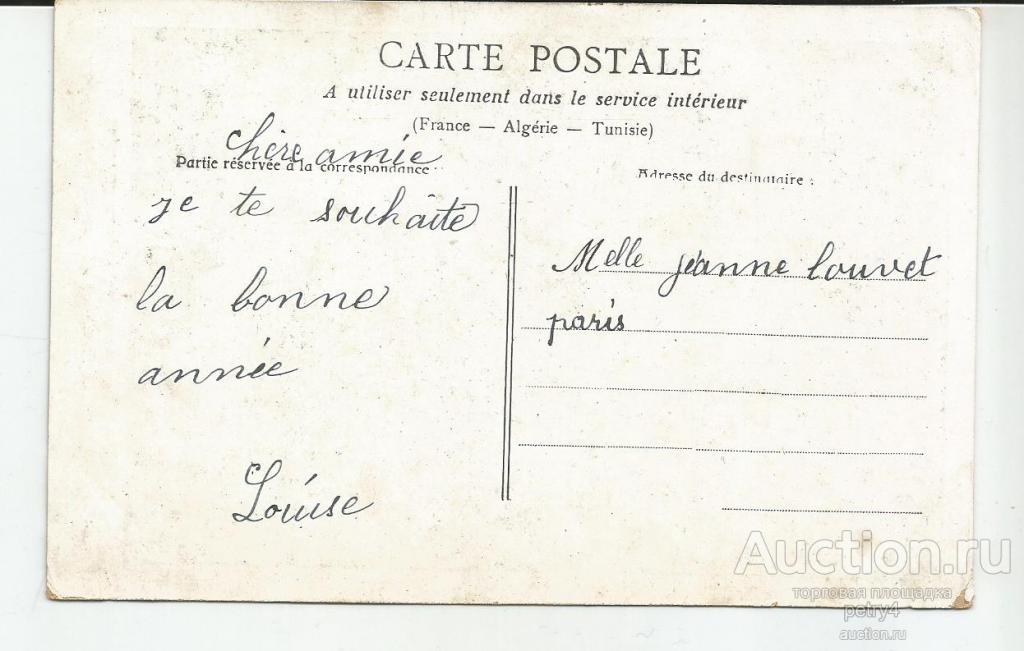 CARTE POSTALE
A utiliser seulement dans le service intérieur
(France — Algérie — Tunisie)
Chère amie
Partie réservée à la correspondance
je te souhaite
la bonne
année
Louise
Adresse du destinataire :
Melle jeanne louvet
paris
Auction.ru
торговая площадка
petry4
auction.ru